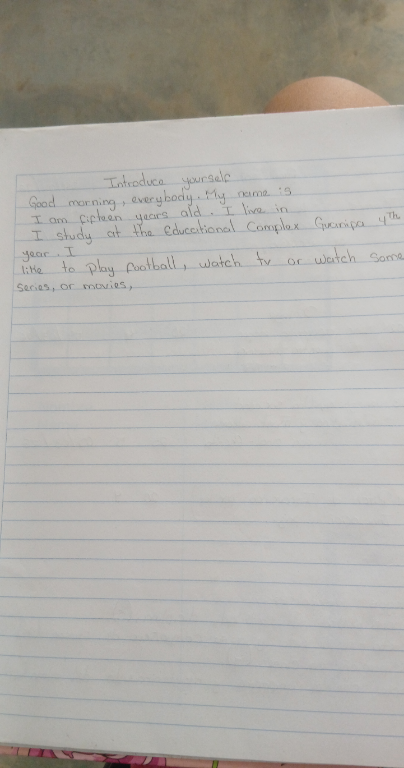 Introduce yourself
Good morning, everybody. My name is
I am fifteen years old. I live in
I study at the Educational Complex Guanipa 4th
year. I
like to play football, watch tv or watch some
series, or movies,